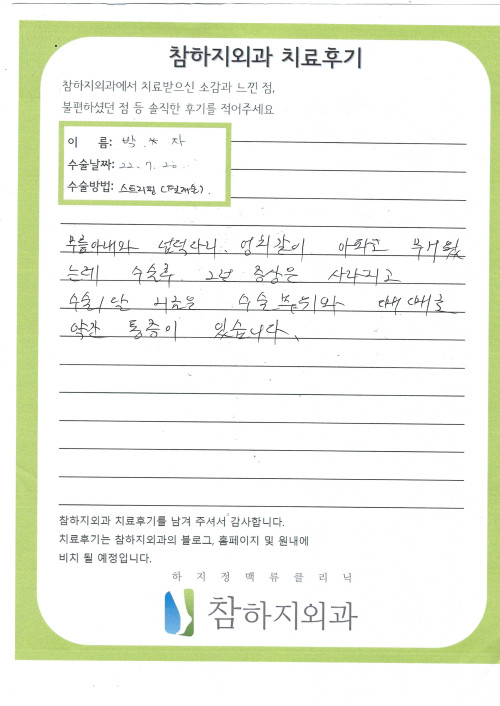 참하지외과 치료후기
참하지외과에서 치료받으신 소감과 느낀 점,
불편하셨던 점 등 솔직한 후기를 적어주세요
이 름: 박 * 자
수술날짜: 22. 7. 20
수술방법: 스트리핑 (
무릎아내와 넙덕다리, 엉치같이 아파고 무거웠
는데 수술후 그런 증상은 사라지고
수술1달 지금은 수술 부위와 때때로
약간 통증이 있습니다.
참하지외과 치료후기를 남겨 주셔서 감사합니다.
치료후기는 참하지외과의 블로그, 홈페이지 및 원내에
비치 될 예정입니다.
하지정맥류클리닉
참하지외과